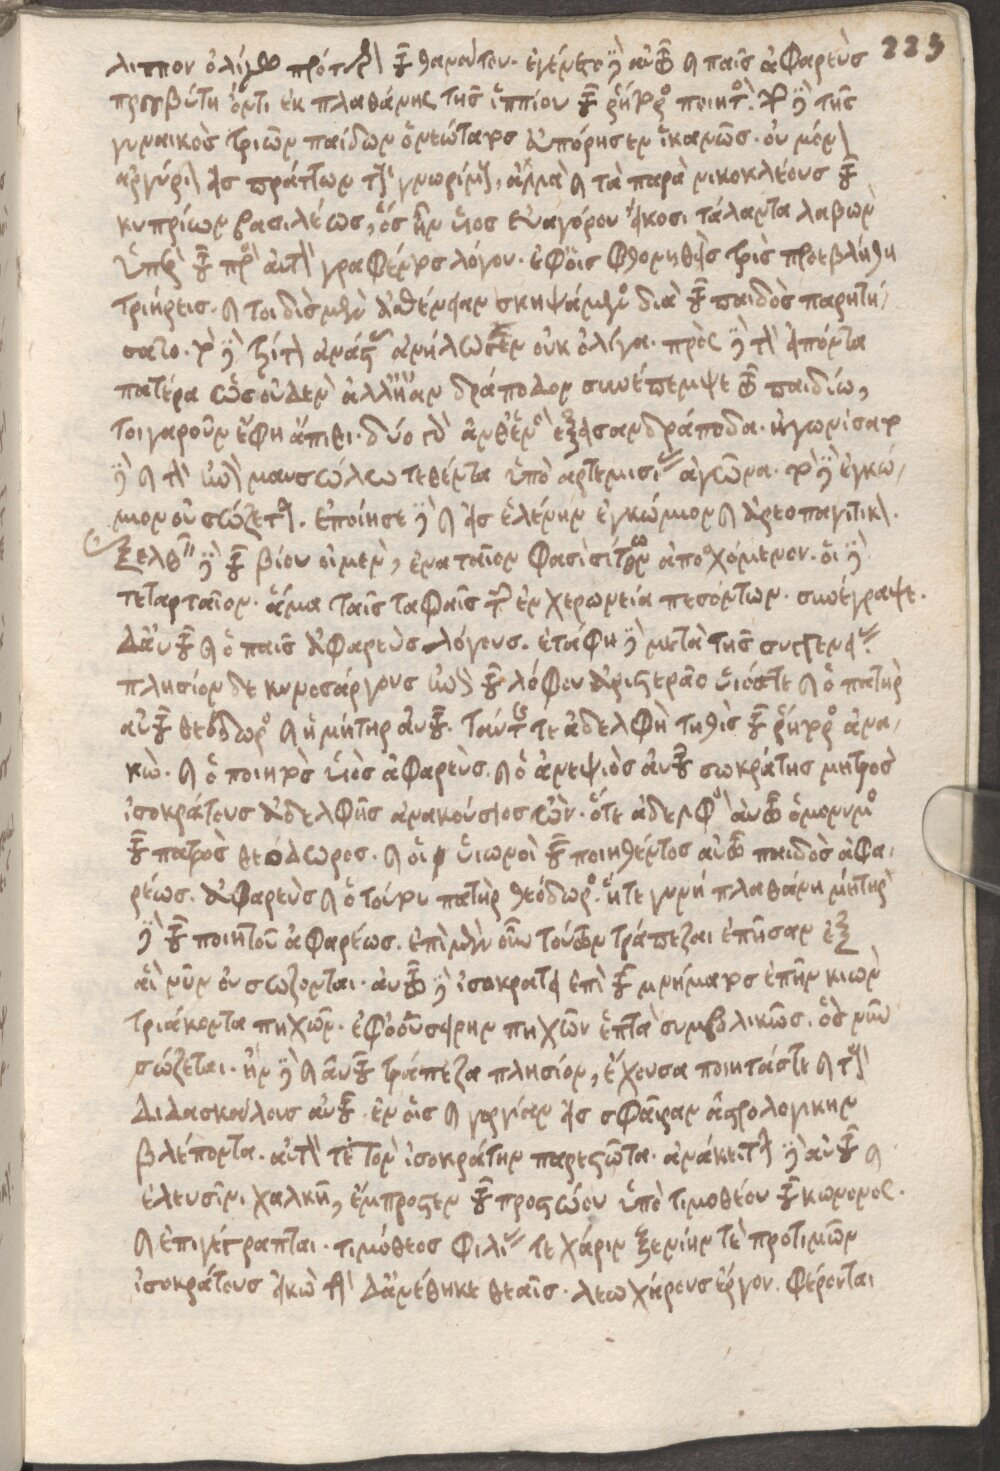 λιππον ὀλίγω πρότερον τοῦ θανάτου. ἐγένετο δὲ αὐτῶ καὶ παῖς ἀφαρεὺς 223
πρεσβύτη ὄντι ἐκ πλαθάνης τῆς ἱππίου τοῦ ῥήτορος ποιητὸς. τῶν δὲ τῆς
γυναικὸς τριῶν παίδων ὁ νεώτατος εὐπόρησεν ἱκανῶς. οὐ μόνον
ἀργύριον εἰσπράττων τοὺς γνωρίμους, ἀλλὰ καὶ τὰ παρὰ νικοκλέους τοῦ
κυπρίων βασιλέως, ὃς ἦν υἱὸς εὐαγόρου εἴκοσι τάλαντα λαβὼν
ὑπὲρ τοῦ πρὸς αὐτὸν γραφέντος λόγον. ἐφ' οἷς φθονηθεὶς τρὶς προεβλήθη
τριήρεις. καὶ τοι δὶς μὲν ἀσθένειαν σκηψάμενος διὰ τοῦ παιδὸς παρητή
σατο. τὸ δὲ τρίτον ἀναστὰς ἀνήλωσεν οὐκ ὀλίγα. πρὸς δὲ τὸν εἰπόντα
πατέρα ὡς οὐδὲν ἄλλ' ἢ ἀν δράποδον συνέπεμψε τῶ παιδίω,
τοιγαροῦν ἔφη ἄπιθι. δύο γὰρ ἀνθ' ἑνὸς ἕξεις ἀνδράποδα. ἠγωνίσατο
δὲ καὶ τὸν ἐπὶ μαυσώλω τεθέντα ὑπὸ ἀρτεμισίας ἀγῶνα. τὸ δὲ ἐγκώ
μιον οὐ σώζεται. ἐποίησε δὲ καὶ εἰς ἑλένην ἐγκώμιον καὶ ἀρεοπαγιτικόν.
ἐξελθεῖν δὲ τοῦ βίου οἱ μὲν, ἐναταῖον φασὶ σίτων ἀποσχόμενον. οἱ δὲ
τεταρταῖον. ἅμα ταῖς ταφαῖς τῶν ἐν χερωνεία πεσόντων. συνέγραψε
δ' αὐτοῦ καὶ ὁ παῖς ἀφαρεὺς λόγους. ἐτάφη δὲ μετὰ τῆς συγγενείας
πλησίον δὲ κυνοσάργους ἐπὶ τοῦ λόφου ἀριστερᾶς υἱός τε καὶ ὁ πατὴρ
αὐτοῦ θεόδωρος καὶ ἡ μήτηρ αὐτοῦ. ταύτης τε ἀδελφὴ τηθὶς τοῦ ῥήτορος ἀνα
κὼ. καὶ ὁ ποιητὸς υἱὸς ἀφαρεὺς. καὶ ὁ ἀνεψιὸς αὐτοῦ σωκράτης μητρὸς
ἰσοκράτους ἀδελφῆς ἀνακοῦς υἱὸς ὢν. ὅτε ἀδελφὸς αὐτοῦ ὁμώνυμος
τοῦ πατρὸς θεόδωρος. καὶ οἱ υἱωνοὶ τοῦ ποιηθέντος αὐτῶ παιδὸς ἀφα
ρέως. ἀφαρεὺς καὶ ὁ τούτου πατὴρ θεόδωρος. ἥτε γυνὴ πλαθάνη μήτηρ
δὲ τοῦ ποιητοῦ ἀφαρέως. ἐπὶ μὲν οὖν τούτων τράπεζαι ἐπῆσαν ἕξ
αἳ νῦν οὐ σώζονται. αὐτῶ δὲ ἰσοκράτει ἐπὶ τοῦ μνήματος ἐπῆν κιὼν
τριάκοντα πηχῶν. ἐφ' οὗ σειρὴν πηχῶν ἑπτὰ συμβολικῶς. ὃς νῦν οὐ
σώζεται. ἦν δὲ καὶ αὐτοῦ τράπεζα πλησίον, ἔχουσα ποιητάς τε καὶ τοὺς
διδασκάλους αὐτοῦ. ἐν οἷς καὶ γοργίαν εἰς σφαῖραν ἀστρολογικὴν
βλέποντα. αὐτόν τε τὸν ἰσοκράτην παρεστῶτα. ἀνάκειται δὲ αὐτοῦ καὶ
ἐλευσῖνι χαλκῆ, ἔμπροσθεν τοῦ προστώου ὑπὸ τιμοθέου τοῦ κώνωνος.
καὶ ἐπιγέγραπται. τιμόθεος φιλίας τε χάριν ξενίην τὲ προτιμῶν
ἰσοκράτους εἰκὼ τήνδ' ἀνέθηκε θεαῖς. λεωχάρους ἔργον. φέρονται